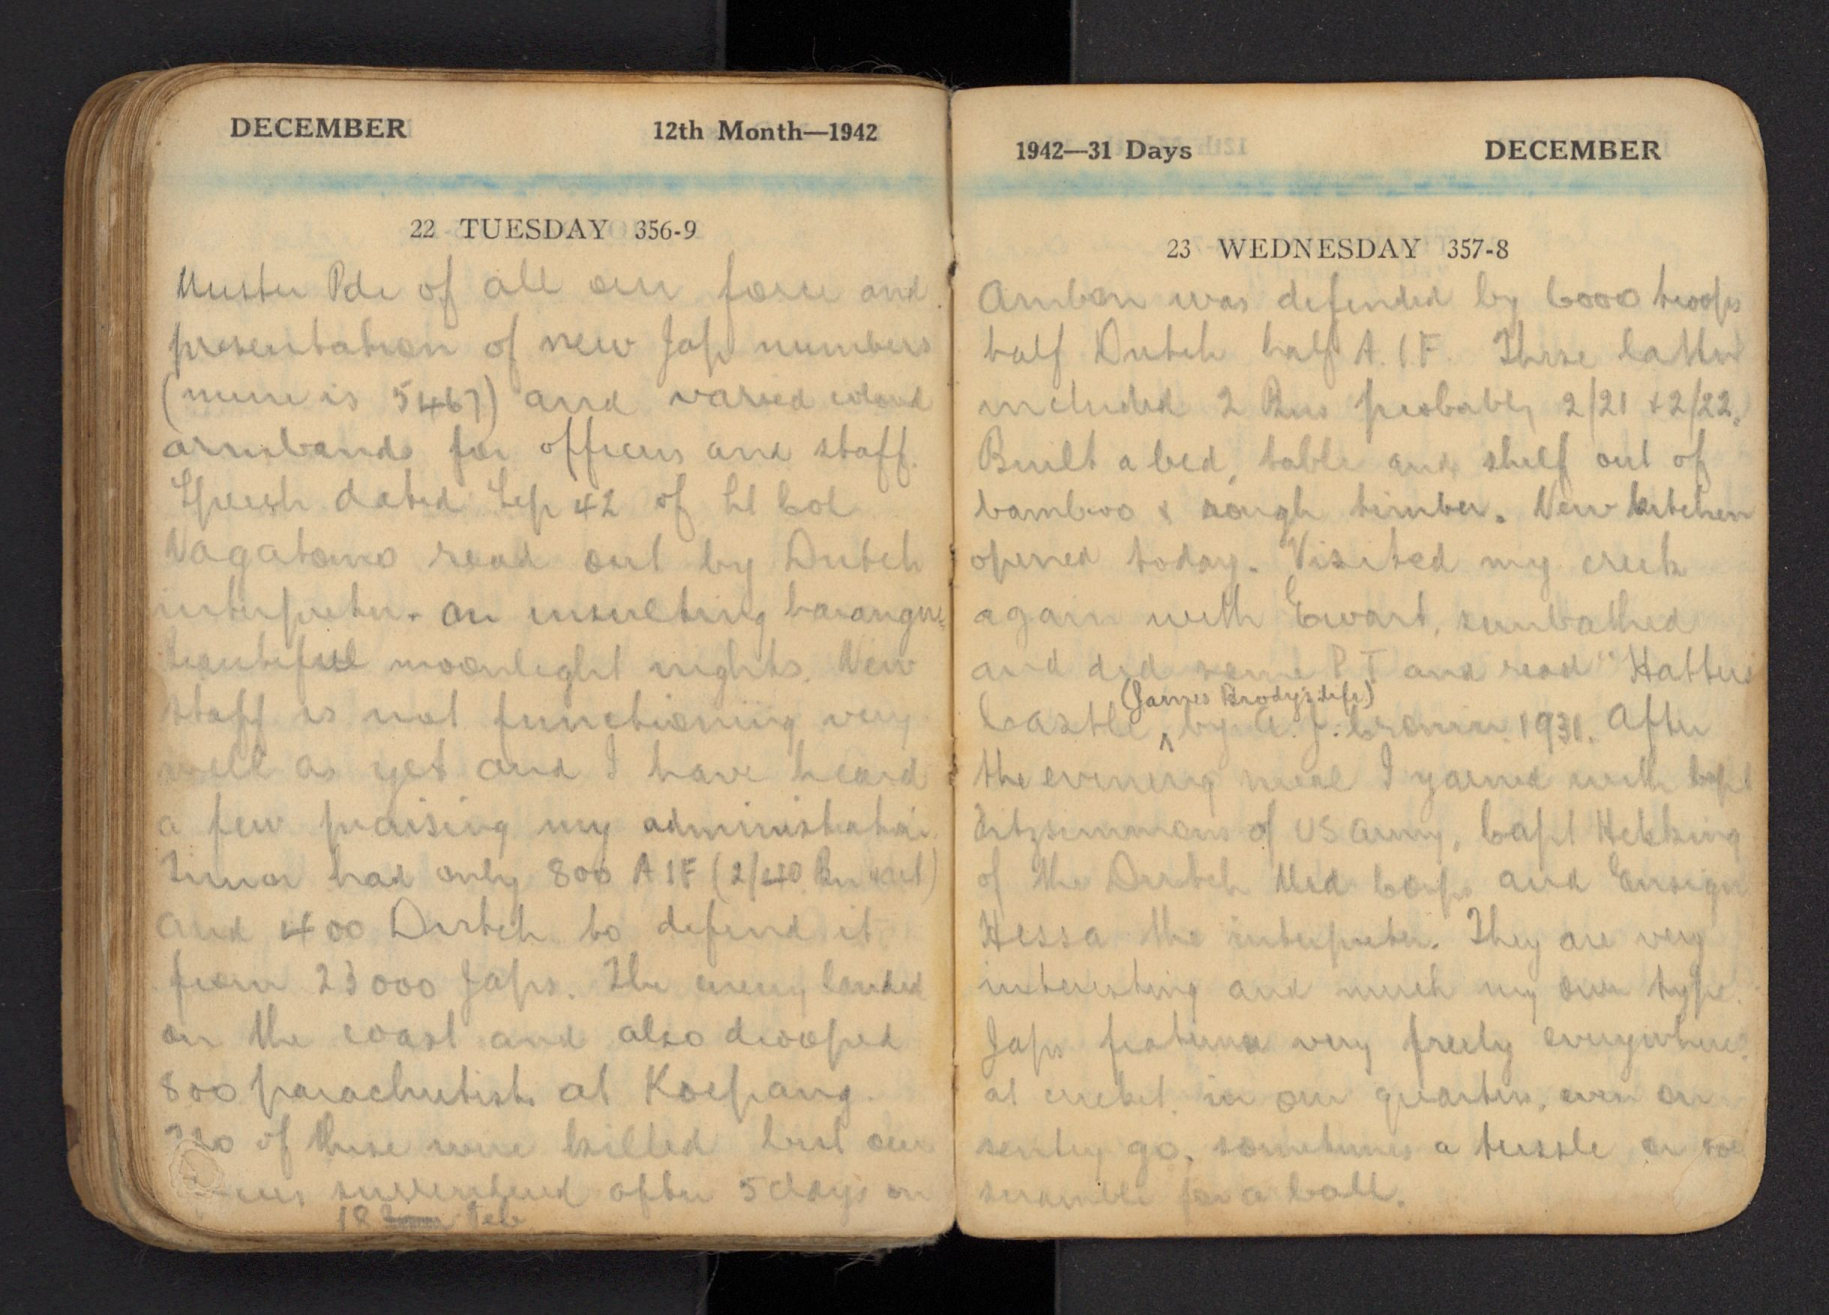 DECEMBER 12th Month—1942
22 TUESDAY 356-9
Muster Pde of all our force and
presentation of new Jap numbers
(mine is 5467) and varied colord
armbands for officers and staff.
Speech dated Sep 42 of Lt Col
Nagatomo read out by Dutch
interpreter - an insulting harangue.
Beautiful moonlight nights. New
staff is not functioning very
well as yet and I have heard
a few praising my administration.
Timor had only 800 AIF (2/40 Bn
and 400 Dutch to defend it
from 23000 Japs. The enemy landed
on the coast and also drooped
800 parachutists at Koepang.
of these were killed but our
surrendered after 5 days on
18 Feb
1942—31 Days DECEMBER
23 WEDNESDAY 357-8
Ambon was defended by 6000 troops
half Dutch half A.I.F. These latter
included 2 Bns probably 2/21 & 2/22.
Built a bed, table and shelf out of
bamboo & rough timber. New kitchen
opened today. Visited my creek
again with Ewart, sunbathed
and did some P T and read "Hatters
(James Brody's life)
Castle by A. J. Cronin 1931. After
the evening meal I yarned with Capt
Fitzsimmons of US Army, Capt Hekking
of the Dutch Med Corps and Ensign
Hessa the interpreter. They are very
interesting and much my own type.
Japs fraternise very freely everywhere:
at cricket, in our quarters, even on
sentry go, sometimes a tussle or
scramble for a ball.